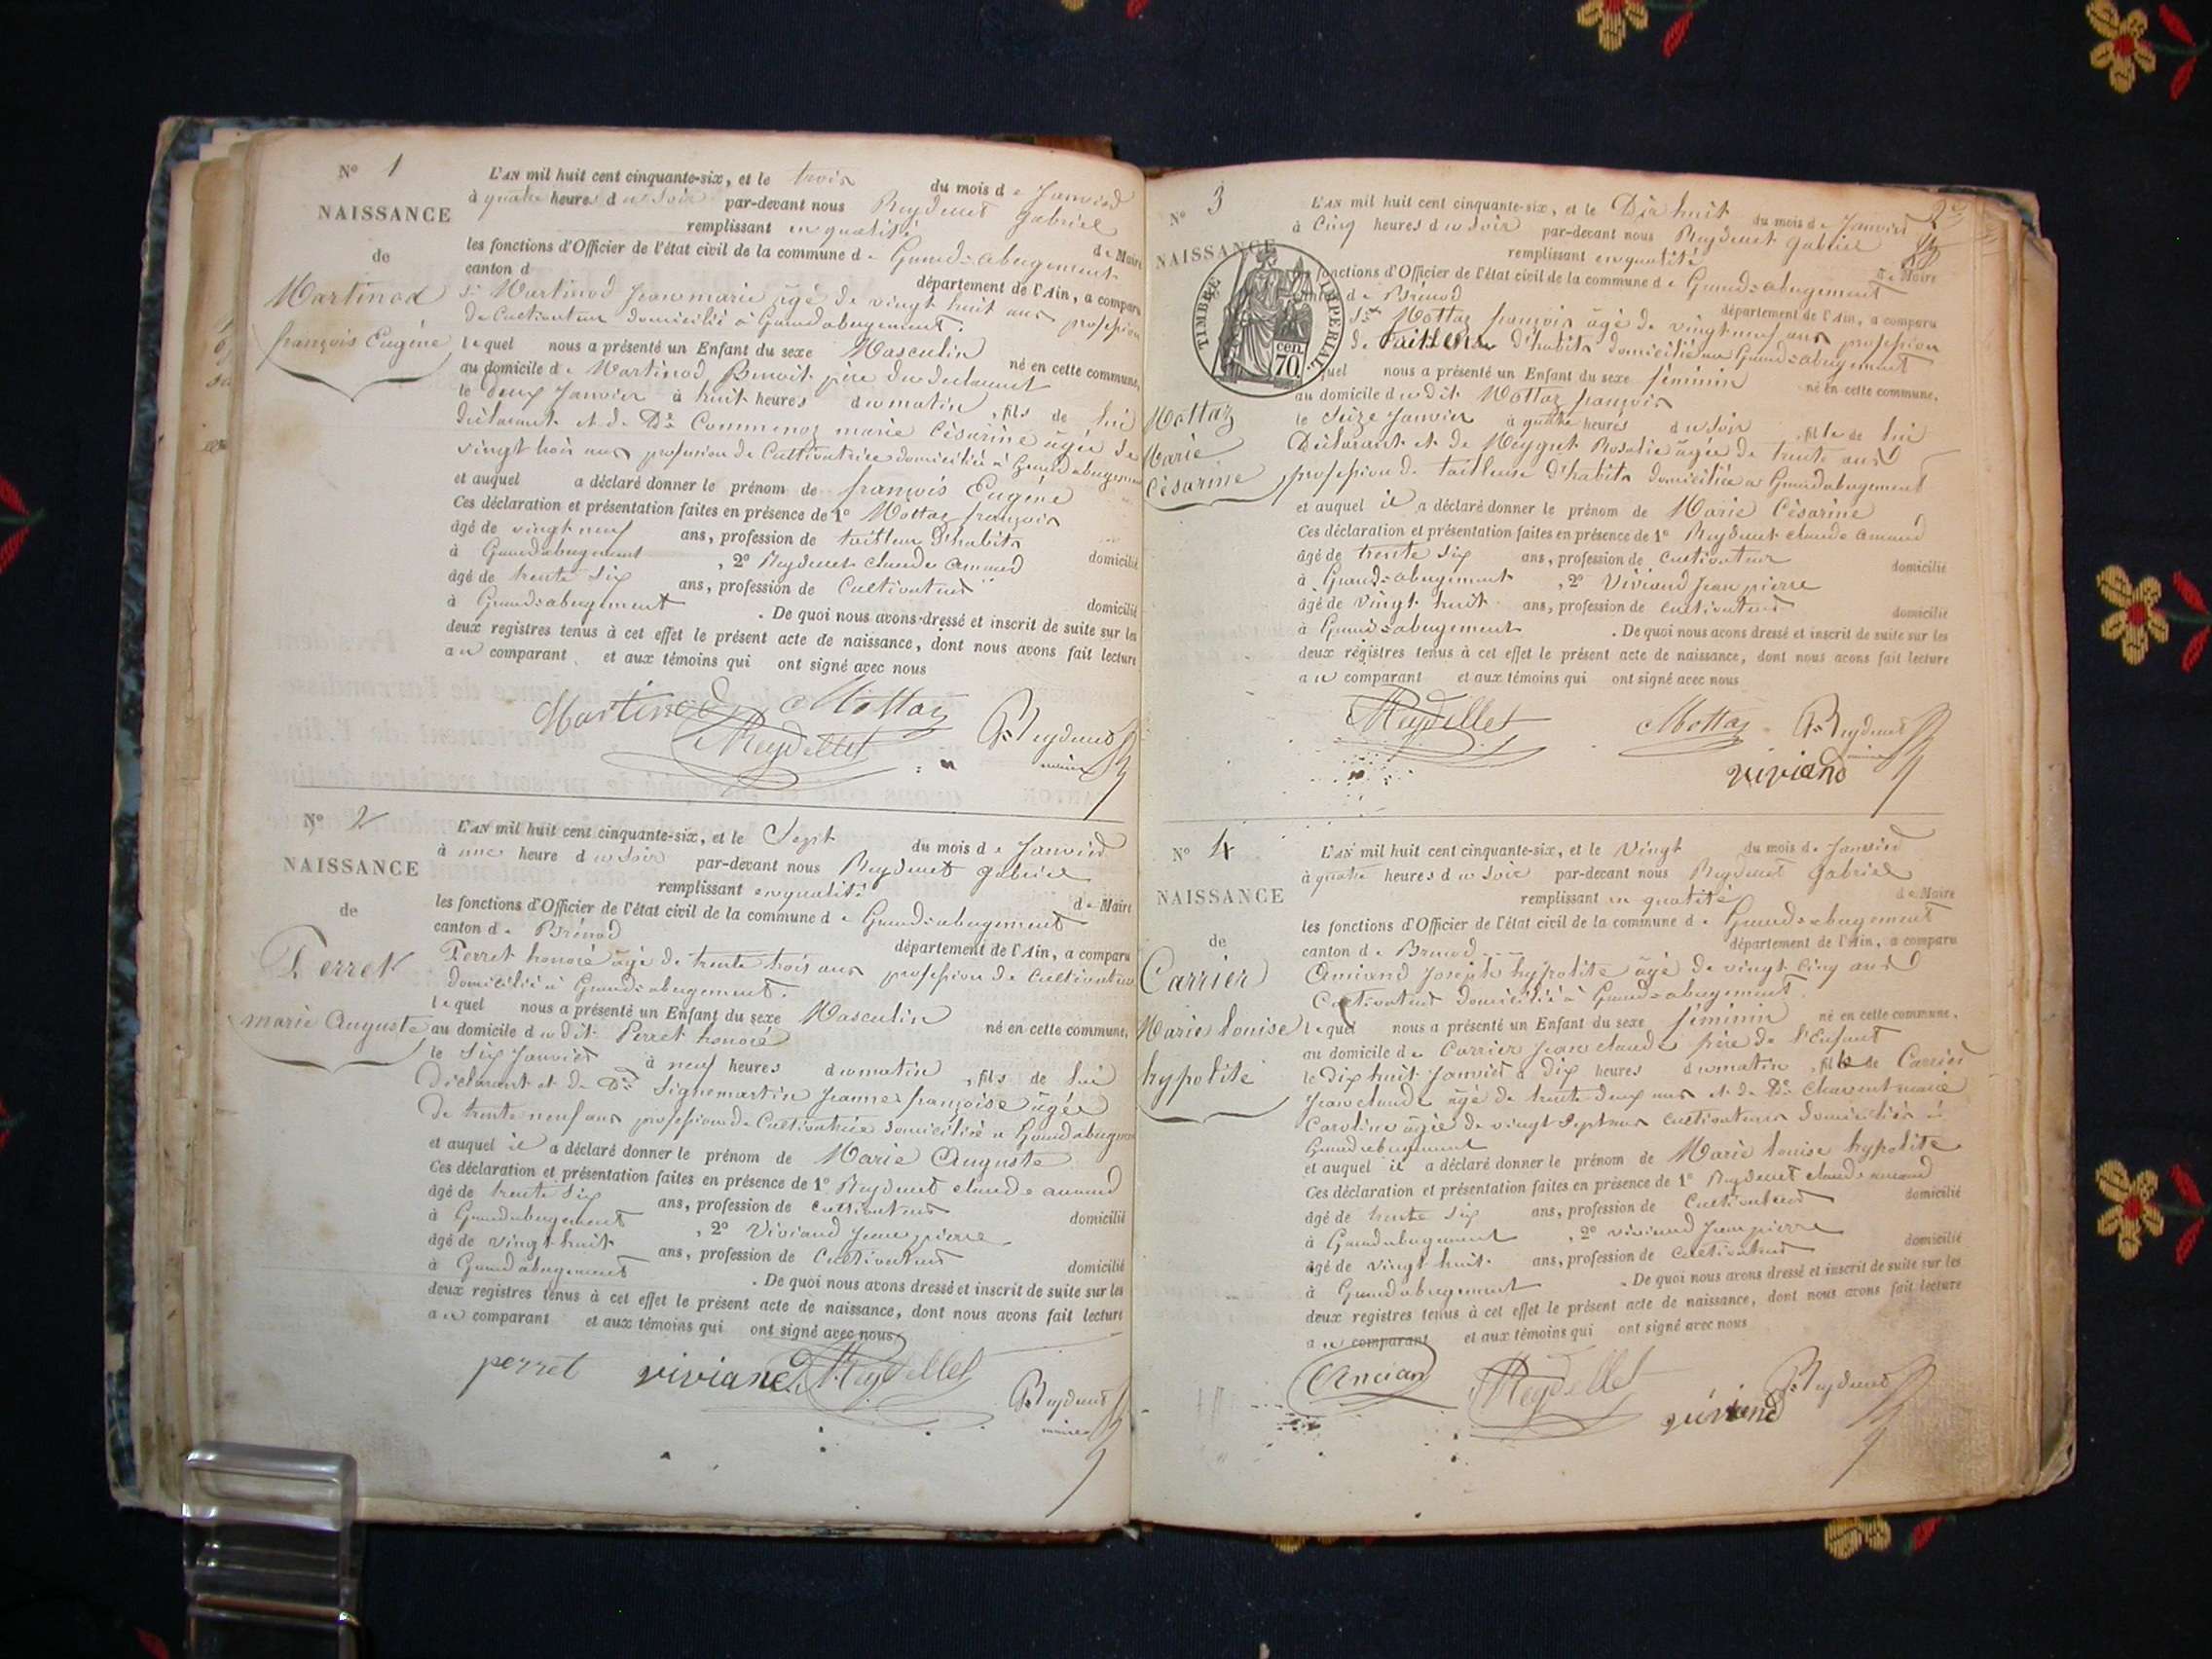 N° 1
NAISSANCE
de
Martinod
françois Eugène
L'AN mil huit cent cinquante-six, et le trois du mois de Janvier
à quatre heures du Soir par-devant nous Reydellet gabriel
remplissant en qualité de Maire
les fonctions d'Officier de l'état civil de la commune de Grand-abergement
canton d département de l'Ain, a comparu
Sr Martinod Jean marie âgé de vingt huit ans profession
de Cultivateur domicilié à Grand abergement.
lequel nous a présenté un Enfant du sexe Masculin né en cette commune,
au domicile de Martinod Benoit père du declarant
le deux Janvier à huit heures du matin, fils de lui
déclarant et de De Commenoz marie Césarine âgée de
vingt trois ans profession de Cultivatrice domiciliée à Grand abergement
et auquel a déclaré donner le prénom de françois Eugène
Ces déclaration et présentation faites en présence de 1° Mottaz françois
âgé de vingt neuf ans, profession de tailleur d'habits domicilié
à Grand abergement, 2° Reydellet claude amand
âgé de trente six ans, profession de Cultivateur domicilié
à Grand-abergement. De quoi nous avons dressé et inscrit de suite sur les
deux registres tenus à cet effet le présent acte de naissance, dont nous avons fait lecture
au comparant et aux témoins qui ont signé avec nous
Martinod Mottaz
Reydellet G. Reydellet
maire
N° 2
NAISSANCE
de
Perret
marie Auguste
L'AN mil huit cent cinquante-six, et le Sept du mois de Janvier
à une heure du Soir par-devant nous Reydellet gabriel
remplissant en qualité de Maire
les fonctions d'Officier de l'état civil de la commune de Grand-abergement
canton de Brénod département de l'Ain, a comparu
Perret honoré âgé de trente trois ans profession de Cultivateur
domicilié à Grand-abergement.
lequel nous a présenté un Enfant du sexe Masculin né en cette commune,
au domicile du dit Perret honoré
le Six Janvier à neuf heures du matin, fils de lui
Déclarant et de De Signemartin Jeanne françoise âgée
de trente neuf ans profession de Cultivatrice domiciliée a Grand abergement
et auquel il a déclaré donner le prénom de Marie Auguste
Ces déclaration et présentation faites en présence de 1° Reydellet claude amand
âgé de trente Six ans, profession de cultivateur domicilié
à Grand abergement, 2° Viviand Jean pierre
âgé de vingt huit ans, profession de Cultivateur domicilié
à Grand abergement. De quoi nous avons dressé et inscrit de suite sur les
deux registres tenus à cet effet le présent acte de naissance, dont nous avons fait lecture
au comparant et aux témoins qui ont signé avec nous
perret viviand Reydellet
G. Reydellet
maire
N° 3
NAISSANCE
TIMBRE IMPERIAL
70. cen.
Mottaz
Marie
Césarine
L'AN mil huit cent cinquante-six, et le Dix huit du mois de Janvier
à Cinq heures du Soir par-devant nous Reydellet gabriel
remplissant en qualité de Maire
fonctions d'Officier de l'état civil de la commune de Grand-abergement
de Brénod département de l'Ain, a comparu
Sr Mottaz françois âgé de vingt neuf ans profession
de Tailleur d'habits domicilié au Grand-abergement
quel nous a présenté un Enfant du sexe féminin né en cette commune,
au domicile du dit Mottaz françois
le Seize Janvier à quatre heures du soir, fille de lui
Déclarant et de Meygret Rosalie âgée de trente ans
profession de tailleuse d'habits domiciliée a Grand abergement
et auquel il a déclaré donner le prénom de Marie Césarine
Ces déclaration et présentation faites en présence de 1° Reydellet claude amand
âgé de trente six ans, profession de cultivateur domicilié
à Grand-abergement, 2° Viviand Jean pierre
âgé de Vingt huit ans, profession de cultivateur domicilié
à Grand-abergement. De quoi nous avons dressé et inscrit de suite sur les
deux registres tenus à cet effet le présent acte de naissance, dont nous avons fait lecture
au comparant et aux témoins qui ont signé avec nous
Reydellet Mottaz G. Reydellet
maire
viviand
N° 4
NAISSANCE
de
Carrier
Marie louise
hypolite
L'AN mil huit cent cinquante-six, et le Vingt du mois de Janvier
à quatre heures du Soir par-devant nous Reydellet gabriel
remplissant en qualité de Maire
les fonctions d'Officier de l'état civil de la commune de Grand-abergement
canton de Brenod département de l'Ain, a comparu
Joseph hypolite âgé de vingt Cinq ans
Cultivateur domicilié à Grand-abergement
lequel nous a présenté un Enfant du sexe féminin né en cette commune,
au domicile de Carrier Jean claude père de l'Enfant
le Dix huit Janvier à Dix heures du matin, fille de Carrier
Jean claude âgé de trente deux ans et de De marie
Caroline âgée de vingt Sept ans cultivateurs domiciliés à
Grand abergement
et auquel il a déclaré donner le prénom de Marie louise hypolite
Ces déclaration et présentation faites en présence de 1° Reydellet claude amand
âgé de trente six ans, profession de Cultivateur domicilié
à Grand abergement, 2° viviand Jean pierre
âgé de vingt huit ans, profession de Cultivateur domicilié
à Grand abergement. De quoi nous avons dressé et inscrit de suite sur les
deux registres tenus à cet effet le présent acte de naissance, dont nous avons fait lecture
au comparant et aux témoins qui ont signé avec nous
Ancian Reydellet viviand G. Reydellet